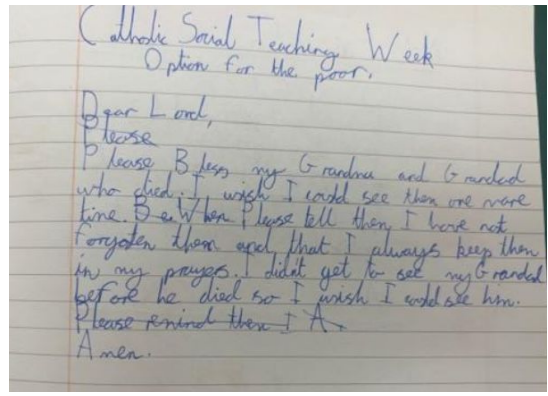 Catholic Social Teaching Week
Option for the poor.
Dear Lord,
Please
Please Bless my Grandma and Grandad
who died. I wish I could see them one more
time. Be When Please tell them I have not
forgoten them and that I always keep them
in my prayers. I didn't get to see my Grandad
before he died so I wish I could see him.
Please remind them I A
Amen.